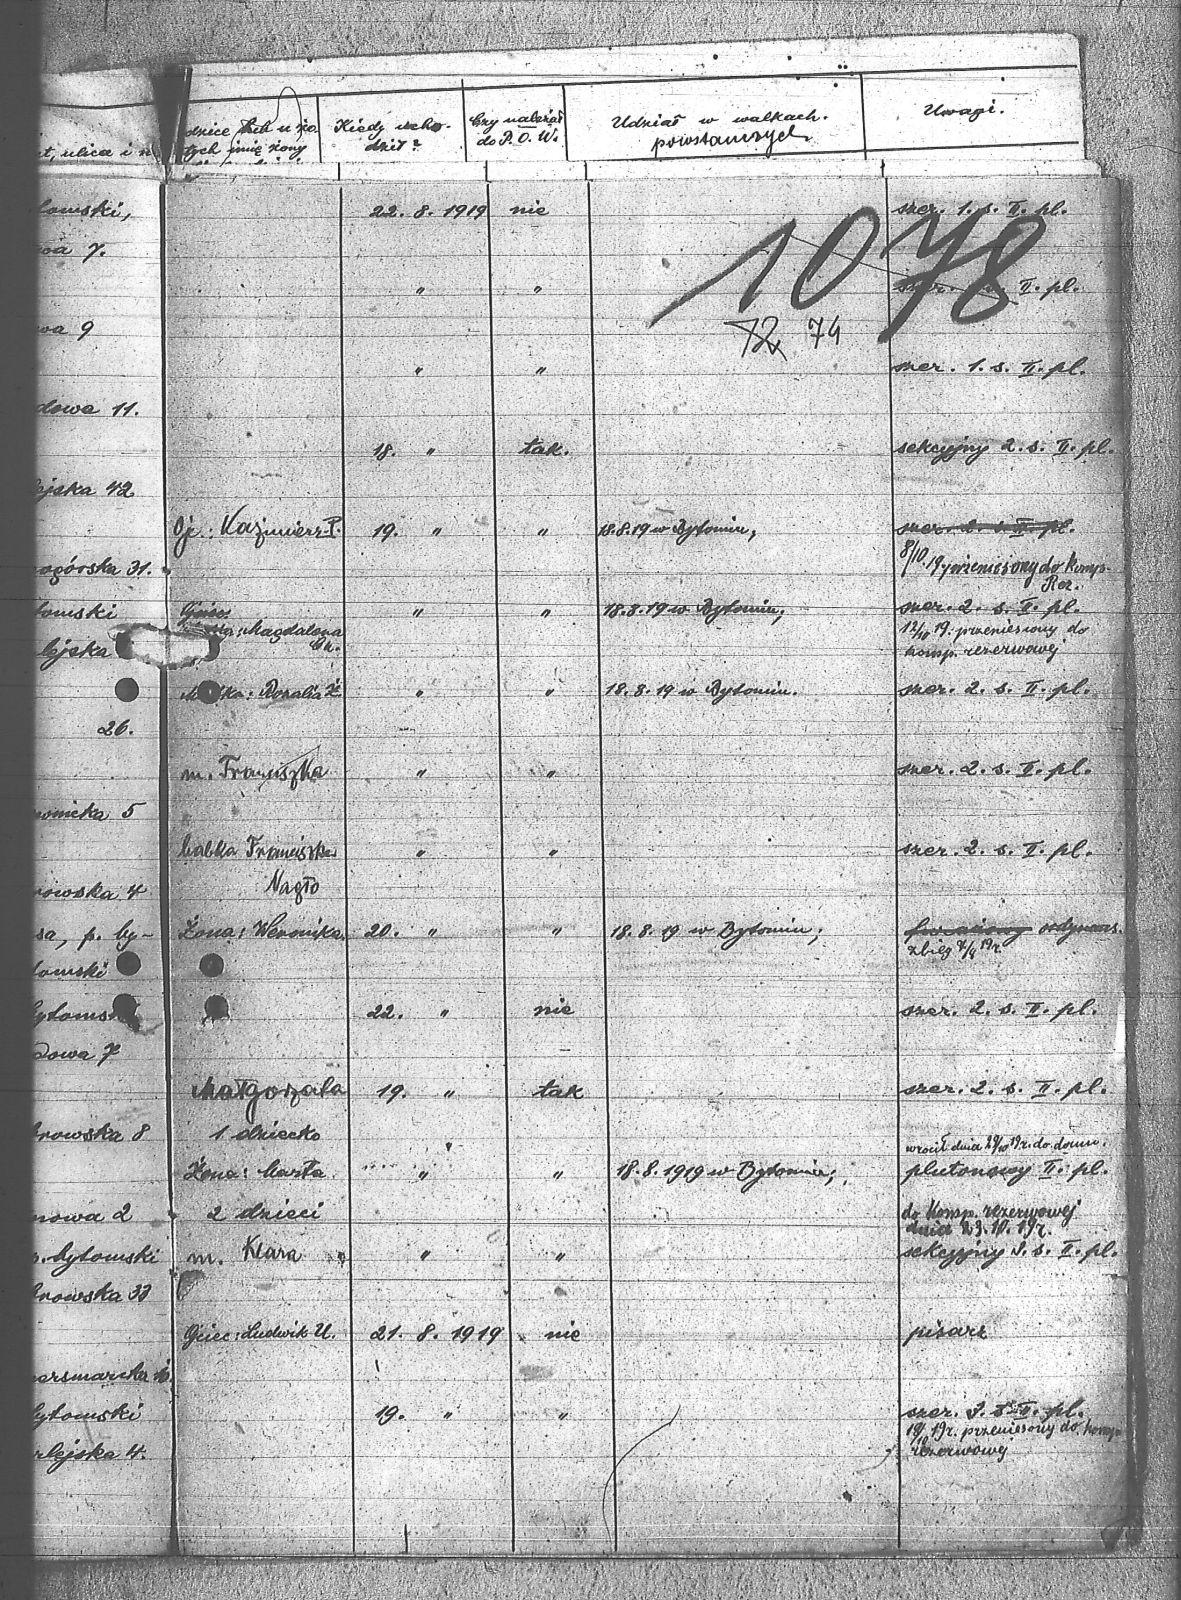 dzice, tych u żo- Kiedy wcho- Czy należał Udział w walkach. Uwagi.
ulica i tych imię żony dził? do P.O.W. powstańczych
tomski, 22. 8. 1919 nie szer. 1. s. II. pl.
wa 7. 1078
" " II. pl.
wa 9 72 74
" " szer. 1. s. II. pl.
dowa 11.
18. " tak. sekcyjny 2. s. II. pl.
ejska 42
Oj.: Kazimierz P. 19. " " 18.8.19 w Bytomiu; szer. 2. s. II. pl.
nogórska 31. 8/10.19 przeniesiony do Komp. Rez.
tomski " " 18.8.19 w Bytomiu; szer. 2. s. II. pl.
lejska Magdalena 12/10 19. przeniesiony do
komp. rezerwowej
Matka: Rozalia " " 18.8.19 w Bytomiu. szer. 2. s. II. pl.
26.
m. Franciszka " " szer. 2. s. II. pl.
wnicka 5
babka Franciszka " " szer. 2. s. II. pl.
rowska 4 Nagło
sa, p. by- Żona: Weronika. 20. " " 18.8.19 w Bytomiu; ordynans.
tomski zbieg 19r.
ytomski 22. " nie szer. 2. s. II. pl.
dowa 7
Małgorzata 19. " tak szer. 2. s. II. pl.
browska 8 1 dziecko wrócił dnia 29/10 19r. do domu.
Żona: Marta. " " 18.8.1919 w Bytomiu; plutonowy II. pl.
nowa 2 2 dzieci do Komp. rezerwowej
dnia 23.10.19r.
p. Bytomski m. Klara " " sekcyjny 3. s. II. pl.
browska 33
Ojciec: Ludwik U. 21. 8. 1919 nie pisarz
ersmarcka
ytomski 19. " " szer. 3. s. II. pl.
rlejska 4. 19r. przeniesiony do komp.
rezerwowej